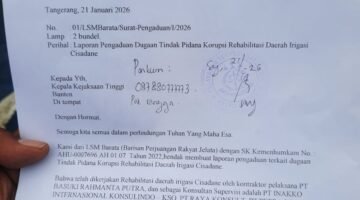 Tangerang, 21 Januari 2026
No : 01/LSMBarata/Surat-Pengaduan/I/2026
Lamp : 2 bundel
Perihal : Laporan Pengaduan Dugaan Tindak Pidana Korupsi Rehabilitasi Daerah Irigasi
Cisadane
Kepada Yth.
Kepala Kejaksaan Tinggi
Banten
Di tempat
Dengan Hormat,
Semoga kita semua dalam perlindungan Tuhan Yang Maha Esa.
Kami dari LSM Barata (Barisan Perjuangan Rakyat Jelata) dengan SK Kemenhumkam No.
AHU-0007696 AH.01.07 Tahun 2022, hendak membuat laporan pengaduan terkait dugaan
Tindak Pidana Korupsi Rehabilitasi Daerah Irigasi Cisadane.
Bahwa telah dikerjakan Rehabilitasi daerah irigasi Cisadane oleh kontraktor pelaksana PT
BASUKI RAHMANTA PUTRA, dan sebagai Konsultan Supervisi adalah PT INAKKO
INTERNASIONAL KONSULINDO - KSO. PT RAYA KONSULT.